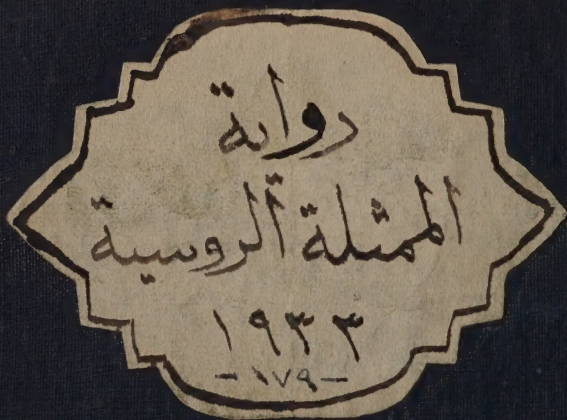 رواية
الممثلة الروسية
١٩٣٣
-١٧٩-